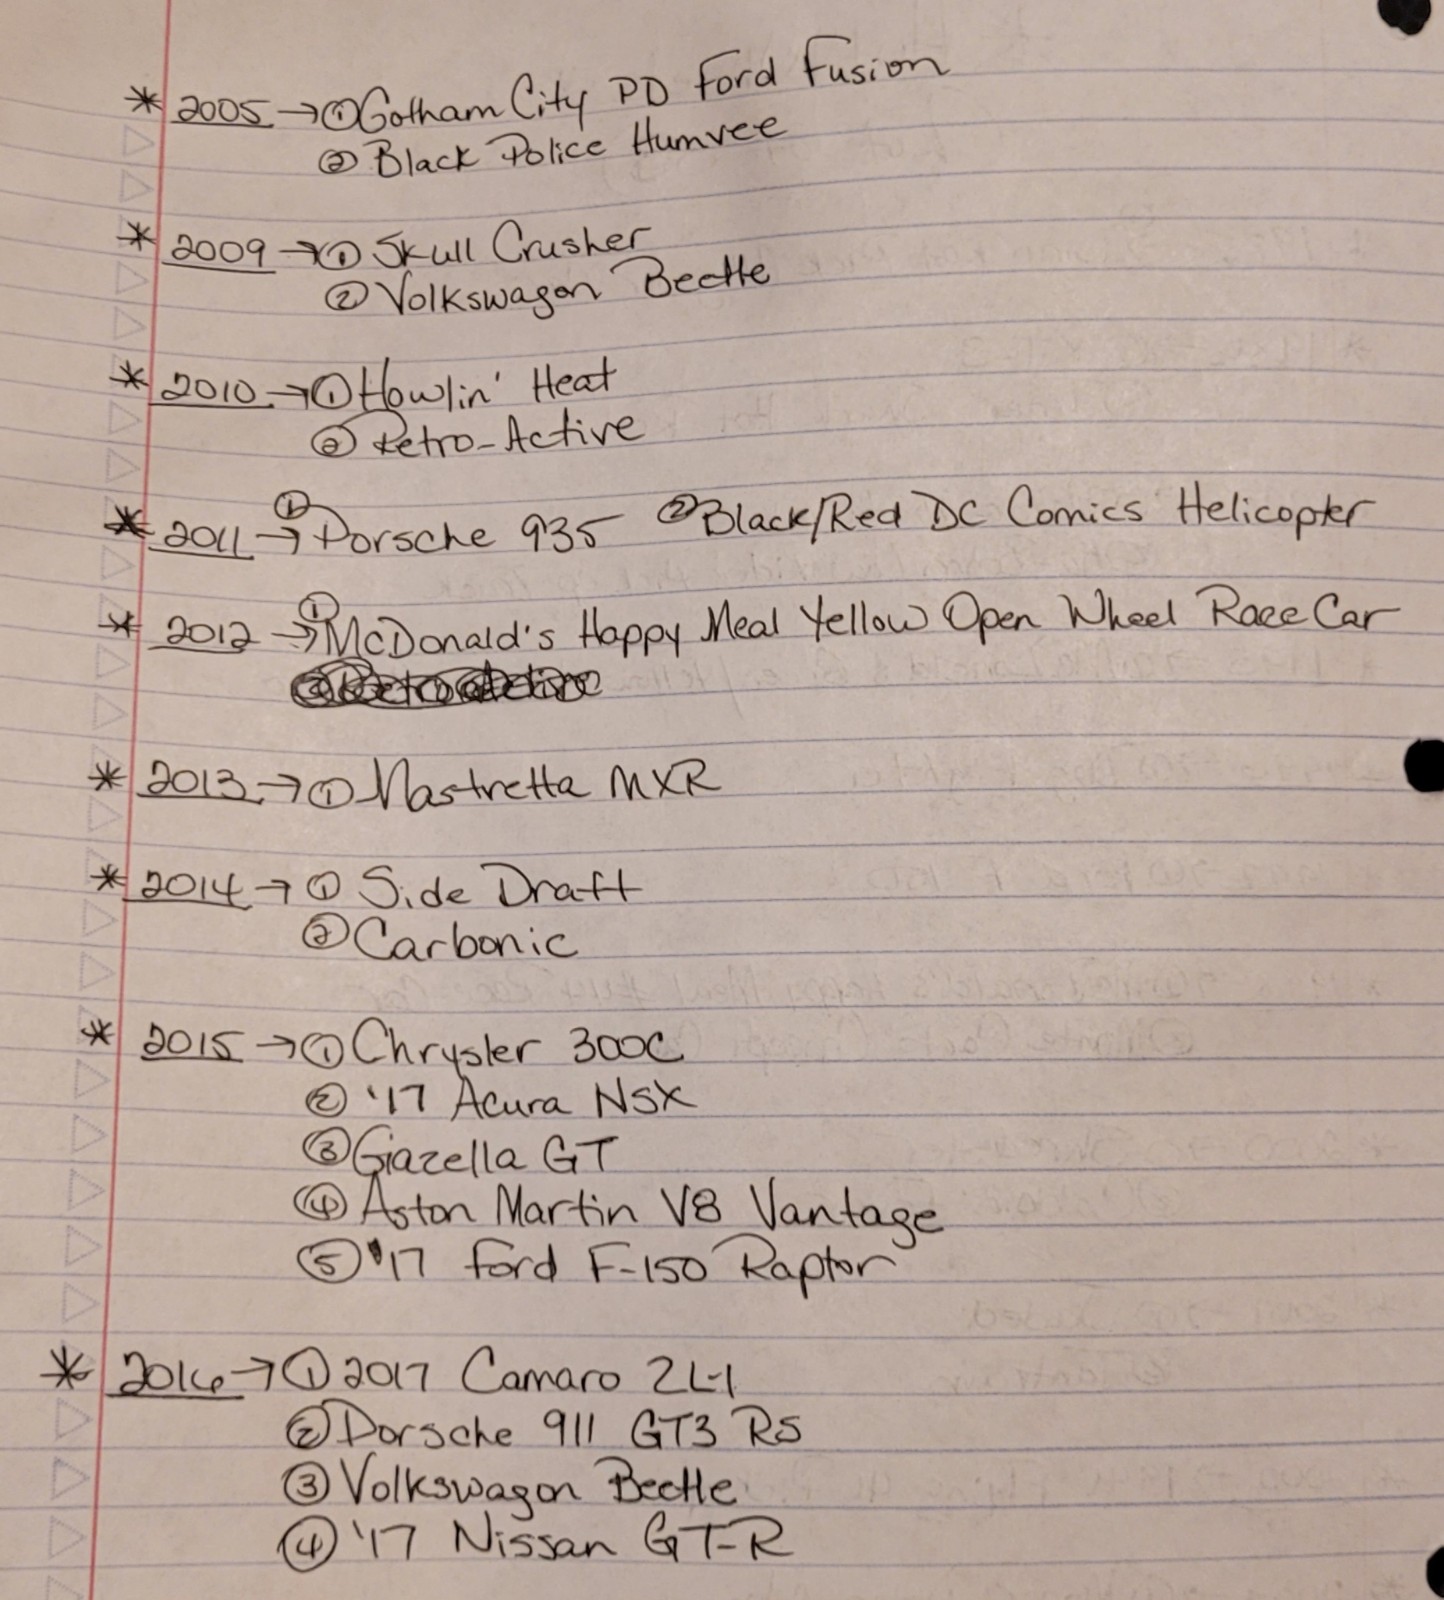 * 2005 → ① Gotham City PD Ford Fusion
② Black Police Humvee
* 2009 → ① Skull Crusher
② Volkswagon Beetle
* 2010 → ① Howlin' Heat
② Retro-Active
* 2011 → ① Porsche 935 ② Black/Red DC Comics Helicopter
* 2012 → ① McDonald's Happy Meal Yellow Open Wheel Race Car
* 2013 → ① Mastretta MXR
* 2014 → ① Side Draft
② Carbonic
* 2015 → ① Chrysler 300C
② '17 Acura NSX
③ Gazella GT
④ Aston Martin V8 Vantage
⑤ '17 Ford F-150 Raptor
* 2016 → ① 2017 Camaro ZL1
② Porsche 911 GT3 RS
③ Volkswagon Beetle
④ '17 Nissan GT-R